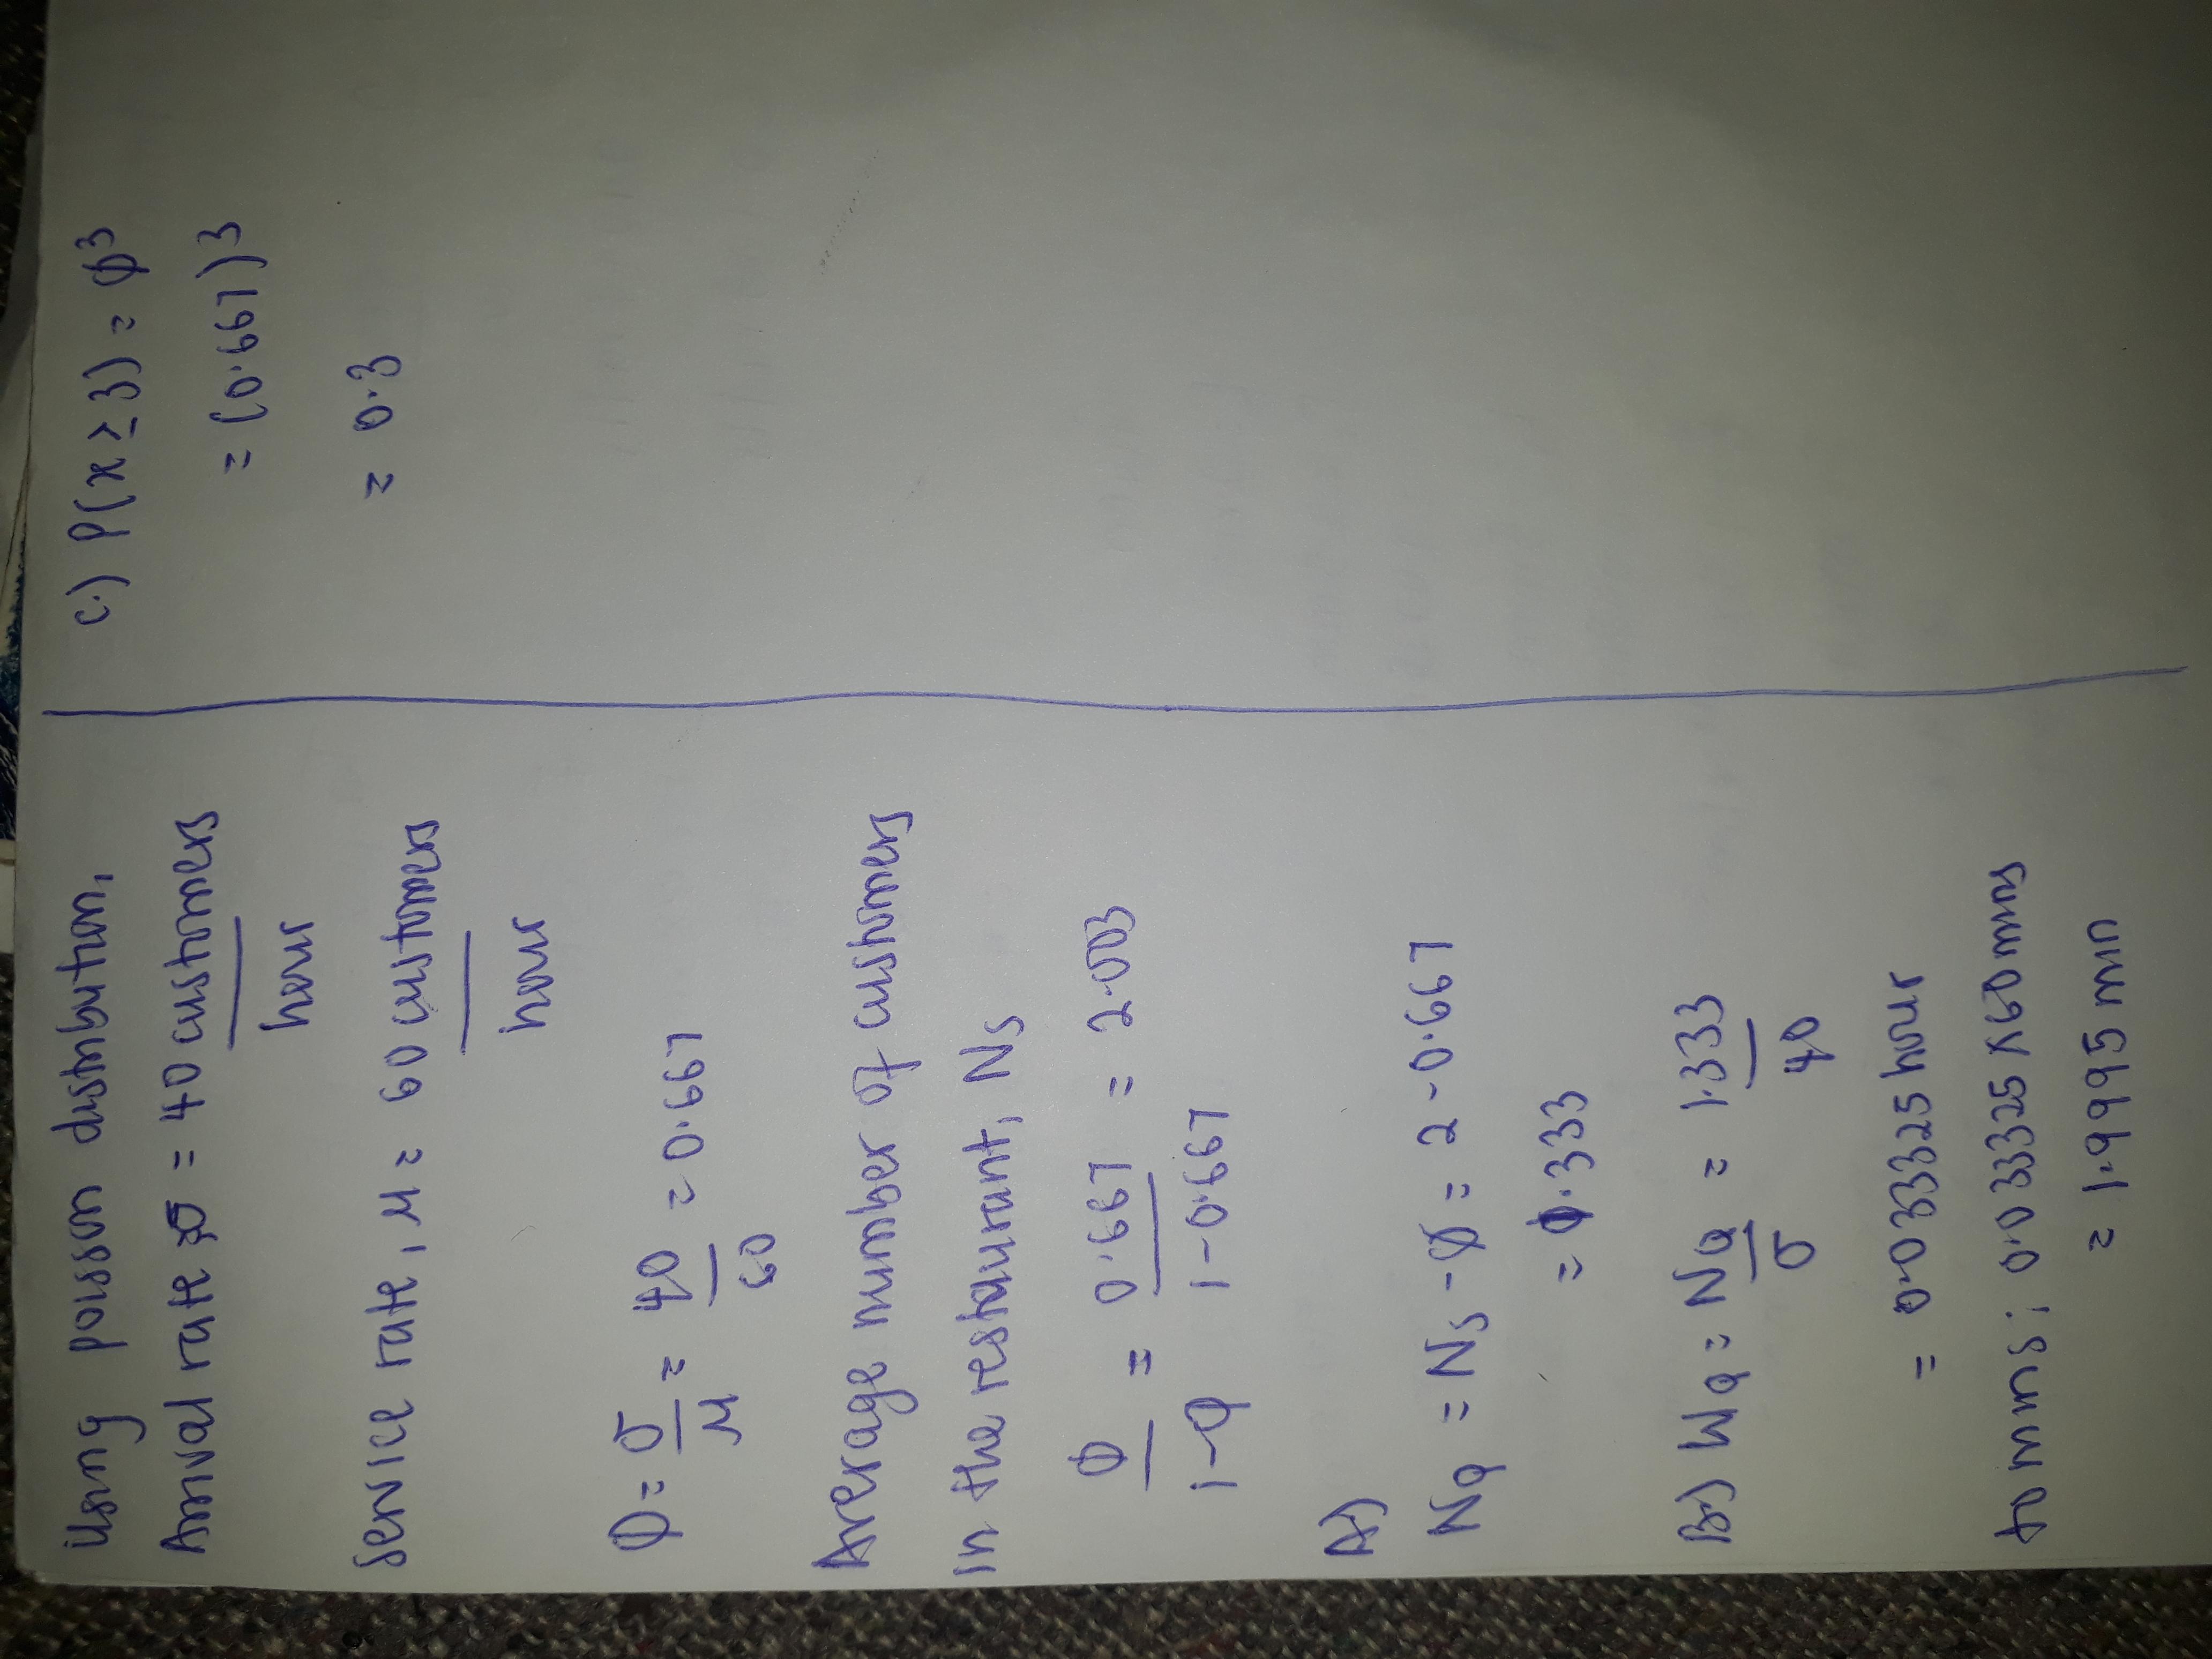 Using poisson distribution,
Arrival rate σ = 40 customers
hour
service rate, μ = 60 customers
hour
φ = σ = 40 = 0.667
μ 60
Average number of customers
in the restaurant, Ns
φ = 0.667 = 2.003
1-φ 1-0.667
A)
Nq = Ns - φ = 2 - 0.667
= 0.333
B.) Wq = Nq = 1.333
σ 40
= 0.03325 hour
to mins; 0.03325 x 60 mins
= 1.9995 min
c.) P(x ≥ 3) = φ³
= (0.667)³
= 0.3